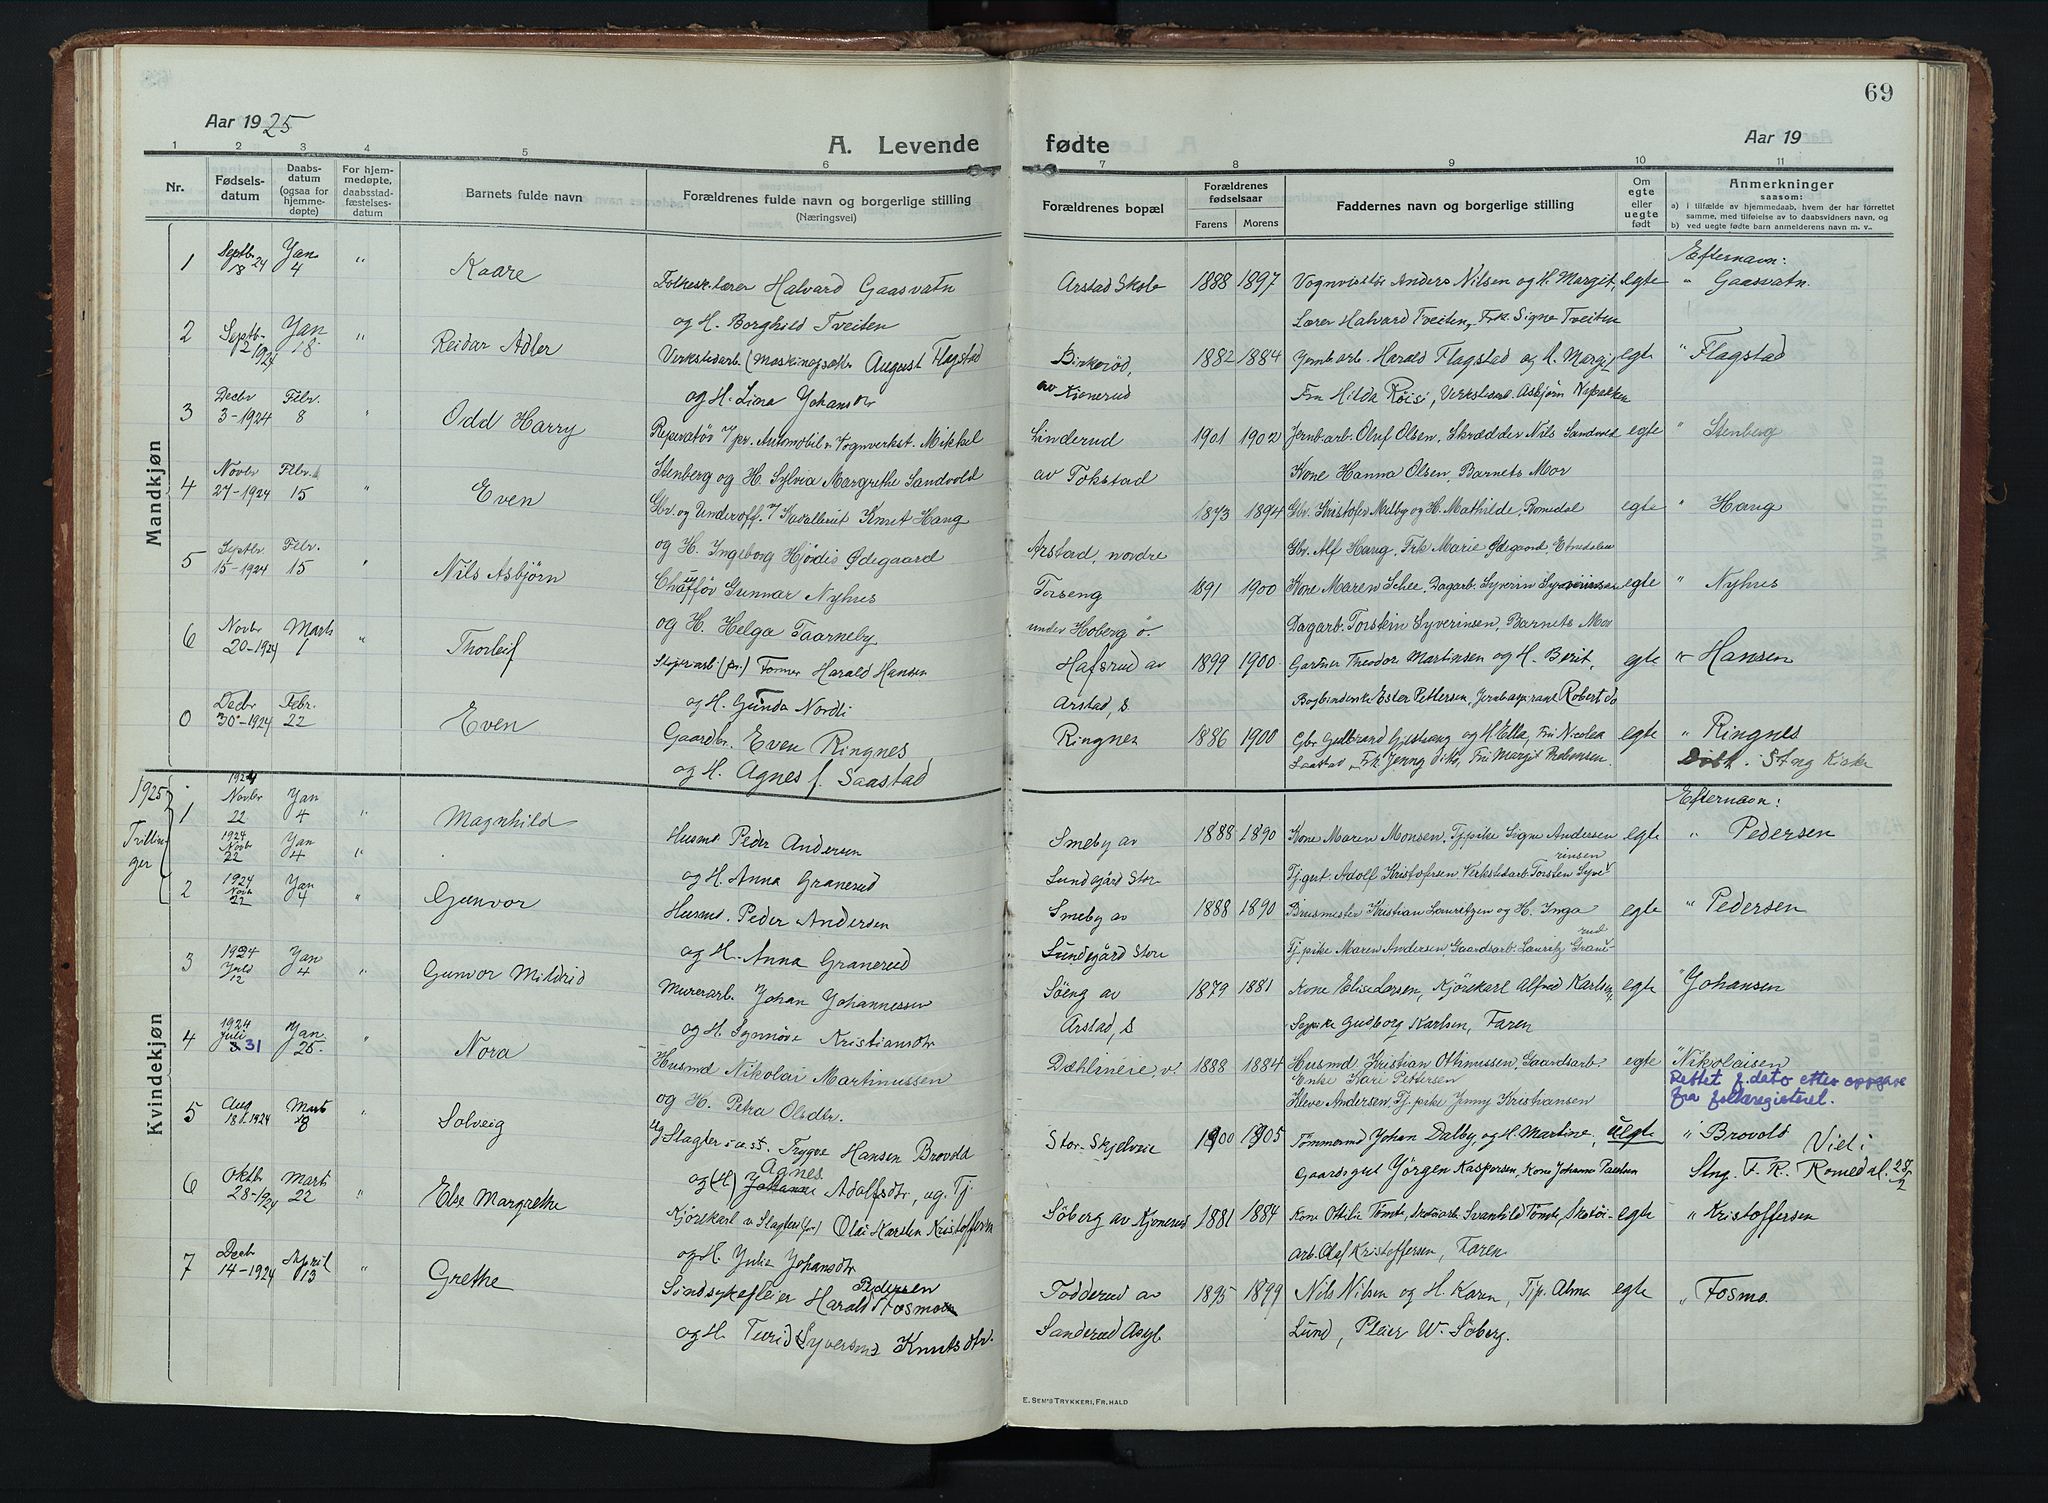 69
Aar 1925
A. Levende
fødte
Aar 19
1 2 3 4 5 6 7 8 9 10 11
Nr.
Fødselsdatum
Daabsdatum (ogsaa for hjemmedøpte)
For hjemmedøpte, daabsstadfæstelsesdatum
Barnets fulde navn
Forældrenes fulde navn og borgerlige stilling
(Næringsvei)
Forældrenes bopæl
Forældrenes fødselsaar
Farens Morens
Faddernes navn og borgerlige stilling
Om egte eller uegte født
Anmerkninger
saasom:
a) i tilfælde av hjemmedaab, hvem der har forrettet samme, med tilføielse av to daabsvidners navn, og
b) ved uegte fødte barn anmelderens navn m. v..
Mandkjøn
Efternavn:
1 Septbr 18 24 Jan 4 " Kaare Folkesk.lærer Halvard Gaasvatn Arstad Skole 1888 1897 Anders Nilsen og H. Margit, egte " Gaasvatn.
og H. Borghild Tveiten Lærer Halvard Tveiten, Frk. Signe Tveiten
2 Septbr 2 1924 Jan 18 " Reidar Adler August Flagstad 1882 1884 Jernb.arb. Harald Flagstad og H. egte " Flagstad
og H. Lina Johansdtr av Kjonerud Fru Hilda
3 Decbr 3-1924 Febr. 8 " Odd Harry Mikkel Linderud 1901 1902 Jernb.arb. Oluf Olsen, Skrædder Nils Sandvold egte " Stenberg
Stenberg og H. Sylvia Margrethe Sandvold av Tokstad Kone Hanna Olsen, Barnets Mor
4 Novbr 27-1924 Febr. 15 " Even Gbr. og Underoff. v/ Kavalleriet Knut Haug 1873 1894 Gbr. Kristofer Melby og H. Mathilde, Romedal egte " Haug
og H. Ingeborg Hjördis Ødegaard Arstad, nordre Gbr. Alf Haug, Frk Marie Ødegaard, Etnedalen
5 Septbr 15-1924 Febr. 15 " Nils Asbjörn Gunnar Nyhus Torseng 1891 1900 Kone Maren Schee, Dagarb. Syverin Syverinsen egte " Nyhus
og H. Helga Taarneby under Hoberg ö. Dagarb. Torstein Syverinsen, Barnets Mor
6 Novbr 20-1924 Marts 1 " Thorleif Former Harald Hansen Hafsrud av 1899 1900 Gartner Theodor Martinsen og H. Berit, egte " Hansen
og H. Gunda Nordli Arstad, s. Ester Pettersen, Jernb.aspirant Robert do
0 Decbr 30-1924 Febr. 22 Even Gaardbr. Even Ringnes Ringnes 1886 1900 Gbr. og H. Ella, Fru Nicolea egte " Ringnes
og H. Agnes f. Saastad Saastad, Frk Jenny dito, Fru Margit Døbt i Stng Kirke
Kvindekjøn
1925
Tvillinger
Efternavn:
1 1924 Novbr 22 Jan 4 " Magnhild Husmd Peder Andersen Smeby av 1888 1890 Kone Maren Monsen, Tj.pike Signe Andersen egte " Pedersen
1924 Novbr 22 Jan 4 " og H. Anna Granerud Lundegård Store Tj.gut Adolf Kristofersen Verkstedarb. Torsten Syverinsen
2 1924 Novbr 22 Jan 4 " Gunvor Husmd. Peder Andersen Smeby av 1888 1890 Kristian Lauritzen og H. Inga egte " Pedersen
og H. Anna Granerud Lundegård Store Tj.pike Maren Andersen, Gaardsarb. Lauritz Granerud
3 1924 12 Jan 4 " Gunvor Mildrid Murerarb. Johan Johannessen Söeng av 1879 1881 Kone Elise Larsen, Kjörekarl Alfred Karlsen, egte " Johansen
og H. Synnöve Kristiansdtr Arstad, S Gudborg Karlsen, Faren
4 1924 Juli 31 Jan 25. " Nora Husmd Nikolai Martinussen 1888 1884 Husmd Kristian Othinussen, Gaardsarb. egte " Nikolaisen
og H. Petra Olsdtr. Enke Kari Pettersen
Kleve Andersen Tj.pike Jenny Kristiansen
Rettet f.dato etter oppgave
fra folkeregisteret.
5 Aug 18-1924 Marts 8 " Solveig Ug Slagter i Trygve Hansen Brovold Stor-Skjelveie 1900 1905 Tömmermd Johan Dalby, og H. Martine, uegte " Brovold Viet i
og (H) Johanne Agnes Adolfsdtr, ug. Tj Gaardsgut Jörgen Kaspersen, Kone Johanne Stng. F. R. Romedal
6 Oktbr 28-1924 Marts 22 " Else Margrethe Kjörekarl v Slagteri Olai Karsten Kristoffersen Söberg av Kjonerud 1881 1884 Kone Ottilie Tomte, Skotöiarb. Svanhild Tomte, Skotöi- egte " Kristoffersen
og H. Julie Johansdtr arb. Olaf Kristoffersen, Faren
7 Decbr 14-1924 April 13 " Grethe Sindsykepleier Harald Pedersen Fosmo Todderud av 1895 1899 Nils Nilsen og H. Karen, Tjp. Alma egte " Fosmo.
og H. Turid Syversen Knutsdtr. Sanderud Asyl Lund, Pleier W. Söberg.
E. SEM'S TRYKKERI, FR.HALD